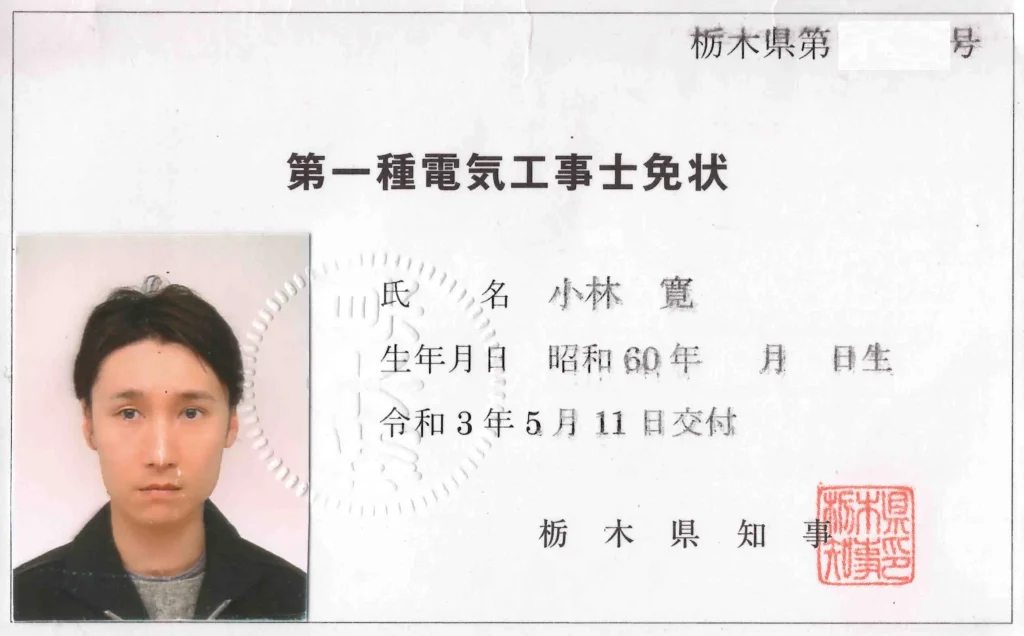 栃木県第 号
第一種電気工事士免状
氏 名 小林 寛
生年月日 昭和60年 月 日生
令和3年5月11日交付
栃木県知事
栃木県知事印